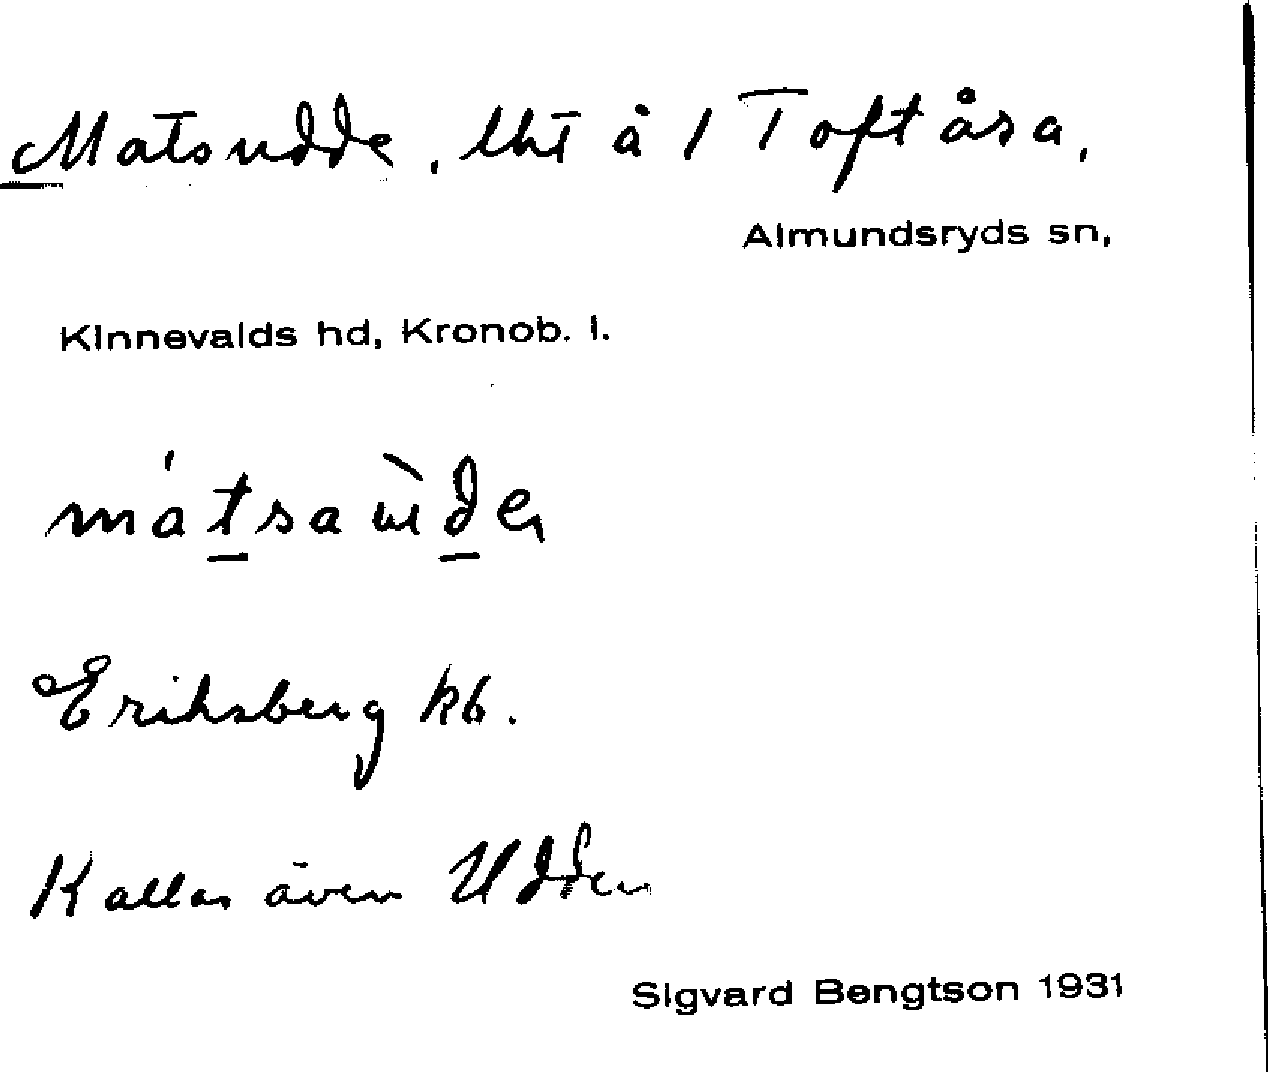 Matsudde, lht å 1 Toftåsa,
Almundsryds sn,
Kinnevalds hd, Kronob. l.
Eriksberg kb.
Kallas även Udden
Sigvard Bengtson 1931